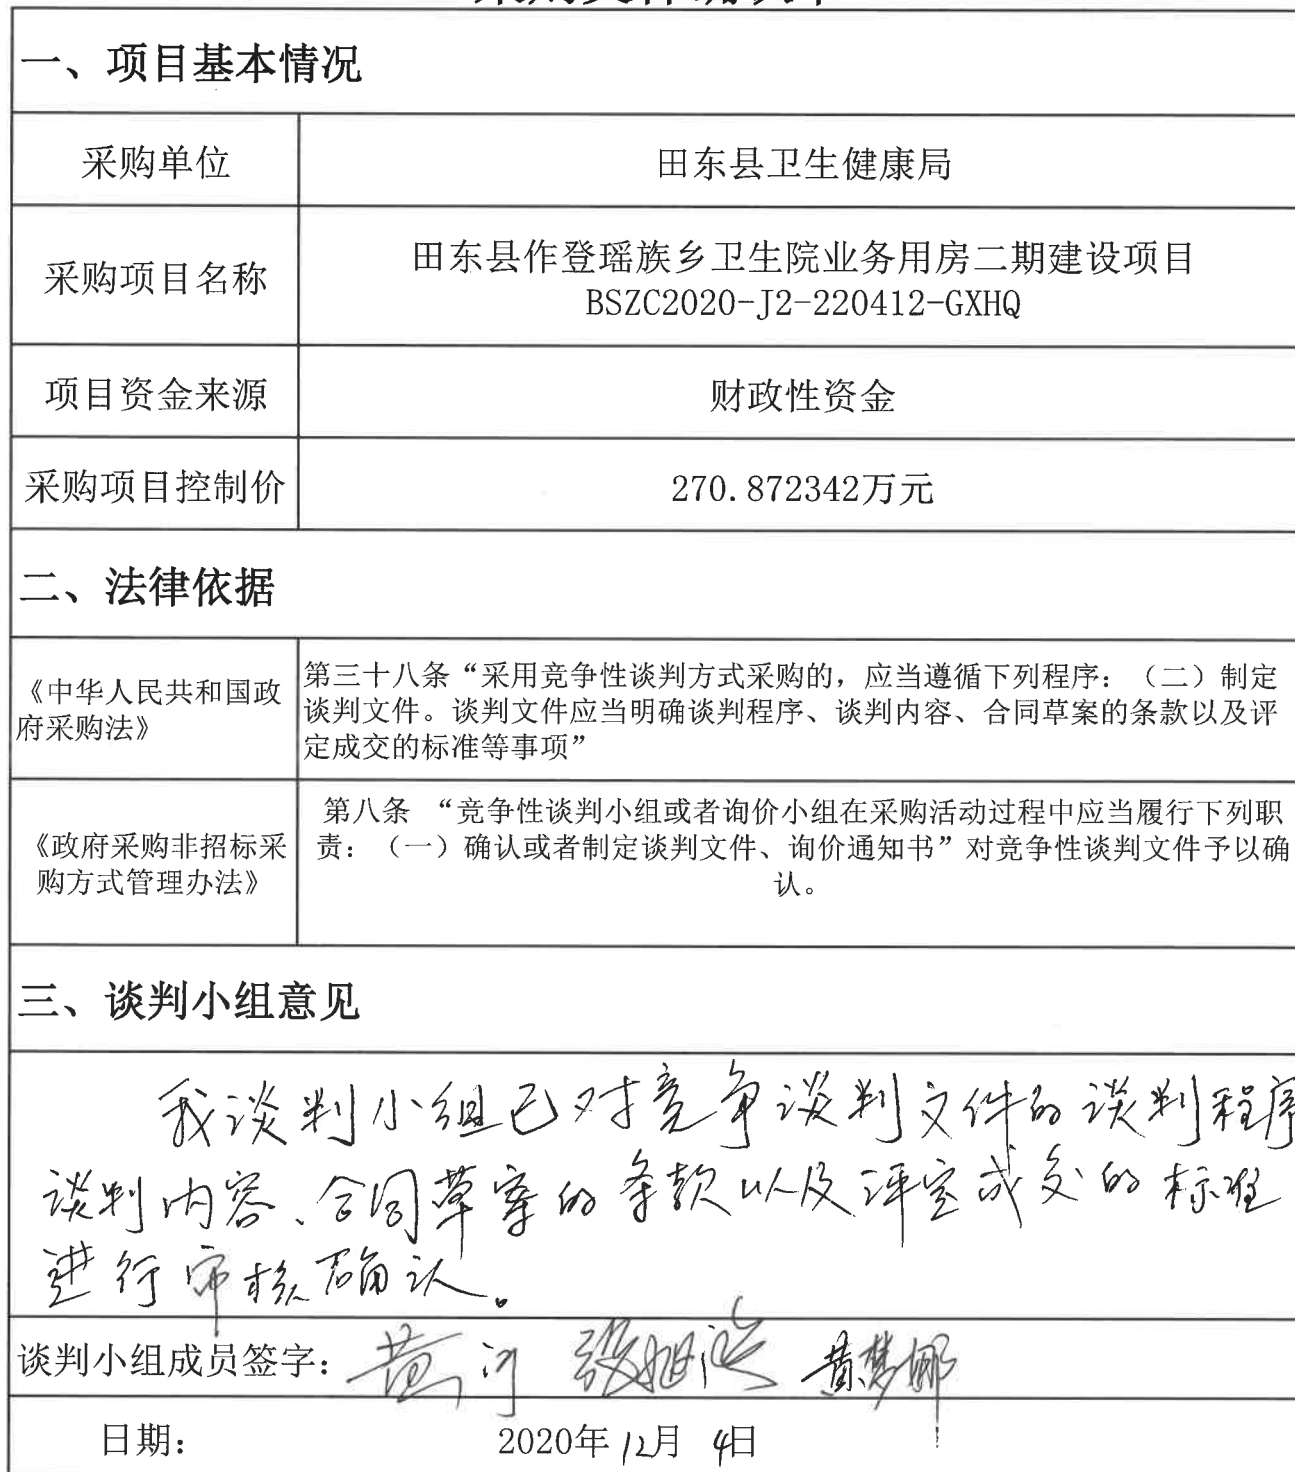 一、项目基本情况
采购单位
田东县卫生健康局
采购项目名称
田东县作登瑶族乡卫生院业务用房二期建设项目
BSZC2020-J2-220412-GXHQ
项目资金来源
财政性资金
采购项目控制价
270.872342万元
二、法律依据
《中华人民共和国政
府采购法》
第三十八条“采用竞争性谈判方式采购的，应当遵循下列程序：（二）制定
谈判文件。谈判文件应当明确谈判程序、谈判内容、合同草案的条款以及评
定成交的标准等事项”
《政府采购非招标采
购方式管理办法》
第八条 “竞争性谈判小组或者询价小组在采购活动过程中应当履行下列职
责：（一）确认或者制定谈判文件、询价通知书”对竞争性谈判文件予以确
认。
三、谈判小组意见
我谈判小组已对竞争谈判文件的谈判程序
谈判内容、合同草案的条款以及评定成交的标准
进行审核确认。
谈判小组成员签字：黄河 黄梦娜
日期：
2020年12月 4日